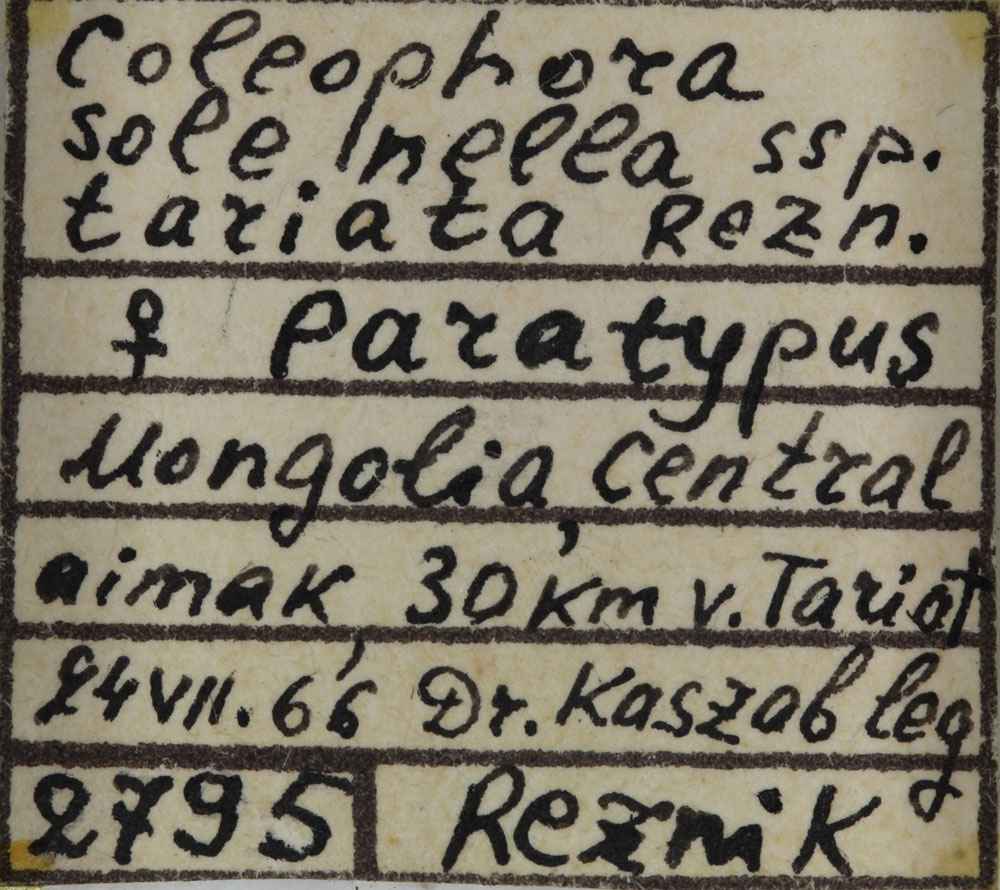 Coleophora
solenella ssp.
tariata Rezn.
♀ Paratypus
Mongolia, Central
aimak, 30 km v. Tariat
24 VII. 66 Dr. Kaszab leg
2795 Reznik